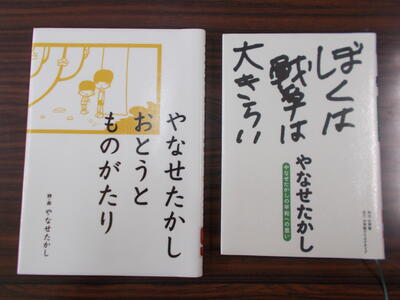 やなせたかし
おとうと
ものがたり
詩・画 やなせたかし
ぼくは
戦争は
大きらい
やなせたかし
やなせたかしの平和への思い